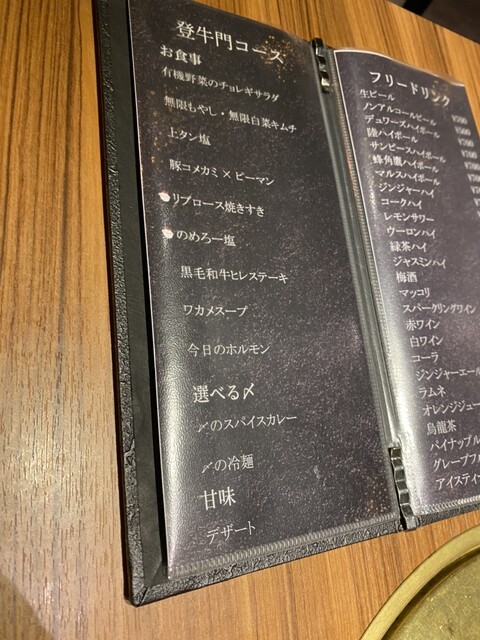 登牛門コース
お食事
有機野菜のチョレギサラダ
無限もやし・無限白菜キムチ
上タン塩
豚コメカミ×ピーマン
リブロース焼きすき
のめろー塩
黒毛和牛ヒレステーキ
ワカメスープ
今日のホルモン
選べる〆
〆のスパイスカレー
〆の冷麺
甘味
デザート
フリードリンク
生ビール
ノンアルコールビール
デュワーズハイボール
陸ハイボール
サンピースハイボール
蜂角鷹ハイボール
マルスハイボール
ジンジャーハイ
コークハイ
レモンサワー
ウーロンハイ
緑茶ハイ
ジャスミンハイ
梅酒
マッコリ
スパークリングワイン
赤ワイン
白ワイン
コーラ
ジンジャーエール
ラムネ
オレンジジュー
烏龍茶
パイナップル
グレープフ
アイスティー